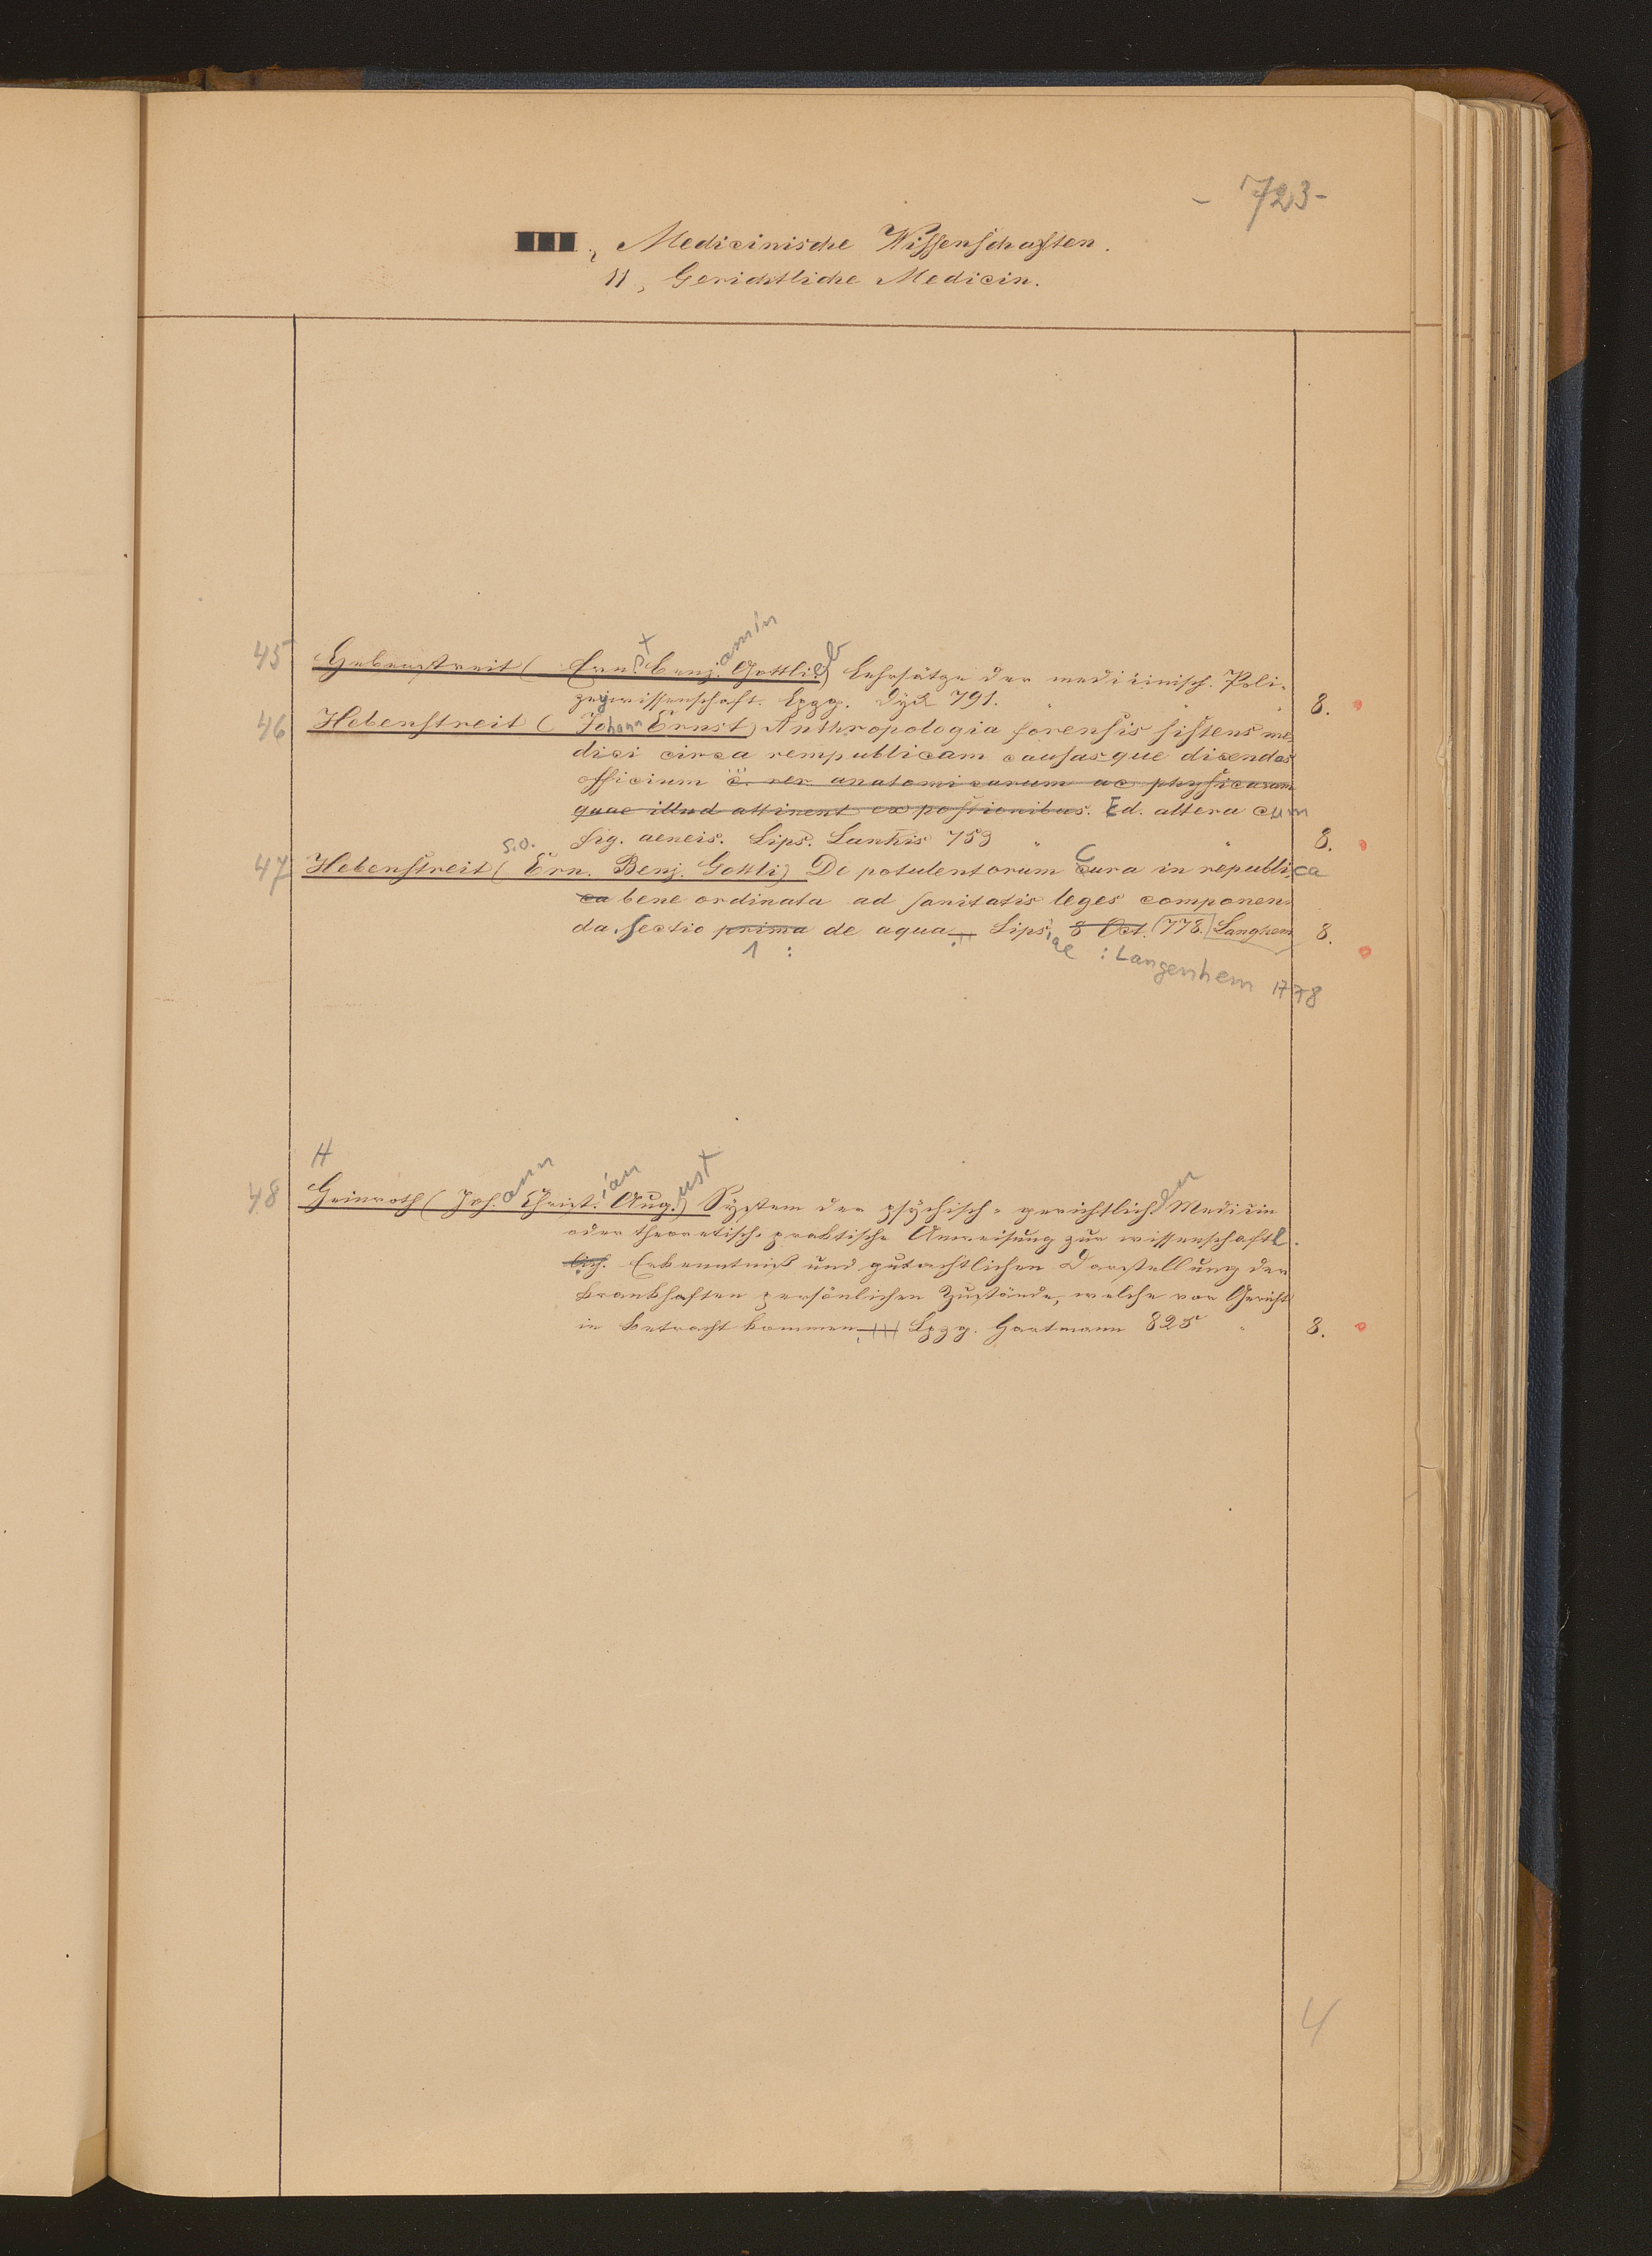 - 723 -
III, Medicinische Wissenschaften.
11, Gerichtliche Medicin.
45 Hebenstreit (Ernst Benjamin Gottlieb) Lehrsätze der medicinisch. Poli-
zeywissenschaft. Lpzg. Dyck 791. " " 8.
46 Hebenstreit (Johann Ernst) Anthropologia forensis sistens me
dici circa rempublicam causasque dicendas
officium c. rer. anatomicarum ac physicarum
quae illud attinent expositionibus. Ed. altera cum
fig. aeneis. Lips. Lankis 753 " " 8.
s.o.
47 Hebenstreit (Ern. Benj. Gottli) De potulentorum Cura in republica
ca bene ordinata ad sanitatis leges componen
da. Sectio prima de aqua Lips. 8 Oct. 778. Langhem 8.
1 : iae : Langenhem 1778
H
48 Heinroth (Johann Christian August) System der psychisch-gerichtlichen Medicin
oder theoretisch-praktische Anweisung zur wissenschaftl.
lich. Erkenntniß und gutachtlichen Darstellung der
krankhaften persönlichen Zustände, welche vor Gericht
in Betracht kommen Lpzg. Hartmann 825 " 8.
4